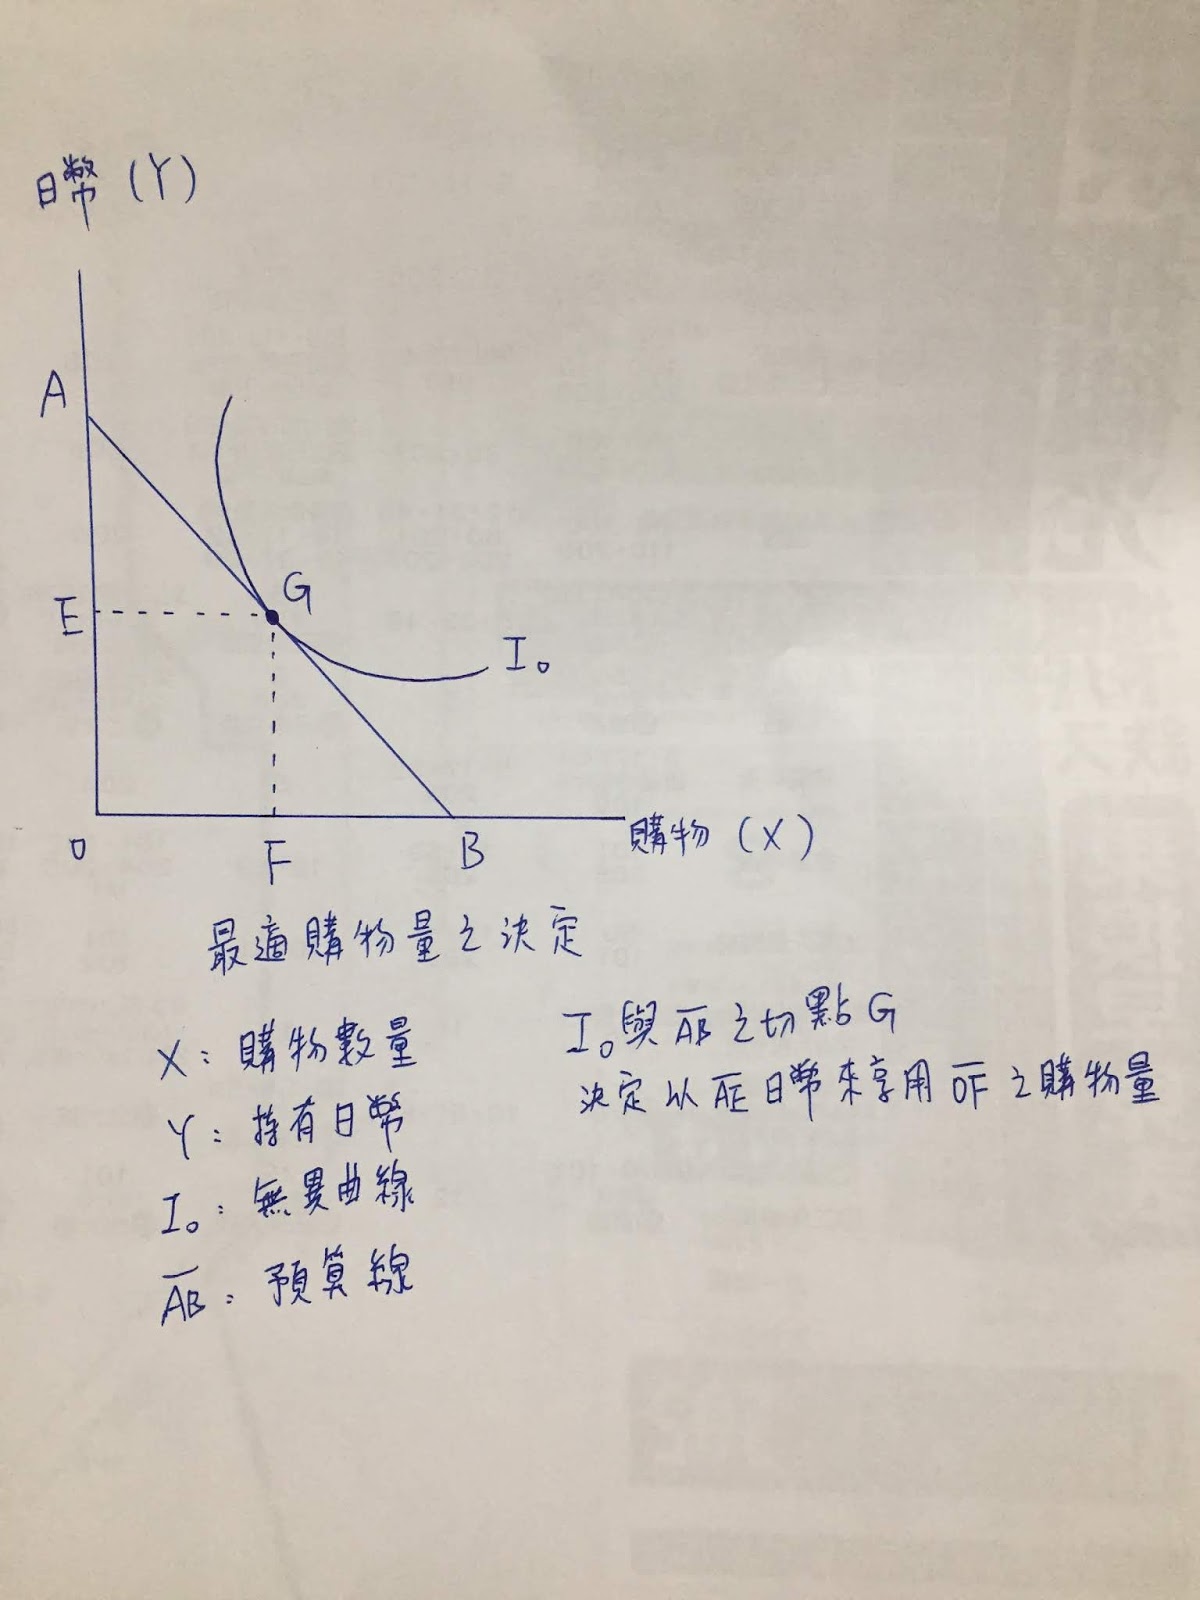 日幣 (Y)
A
E
G
I₀
O
F
B
購物 (X)
最適購物量之決定
X: 購物數量
Y: 持有日幣
I₀: 無異曲線
A̅B̅: 預算線
I₀與A̅B̅之切點G
決定以A̅E̅日幣來享用O̅F̅之購物量